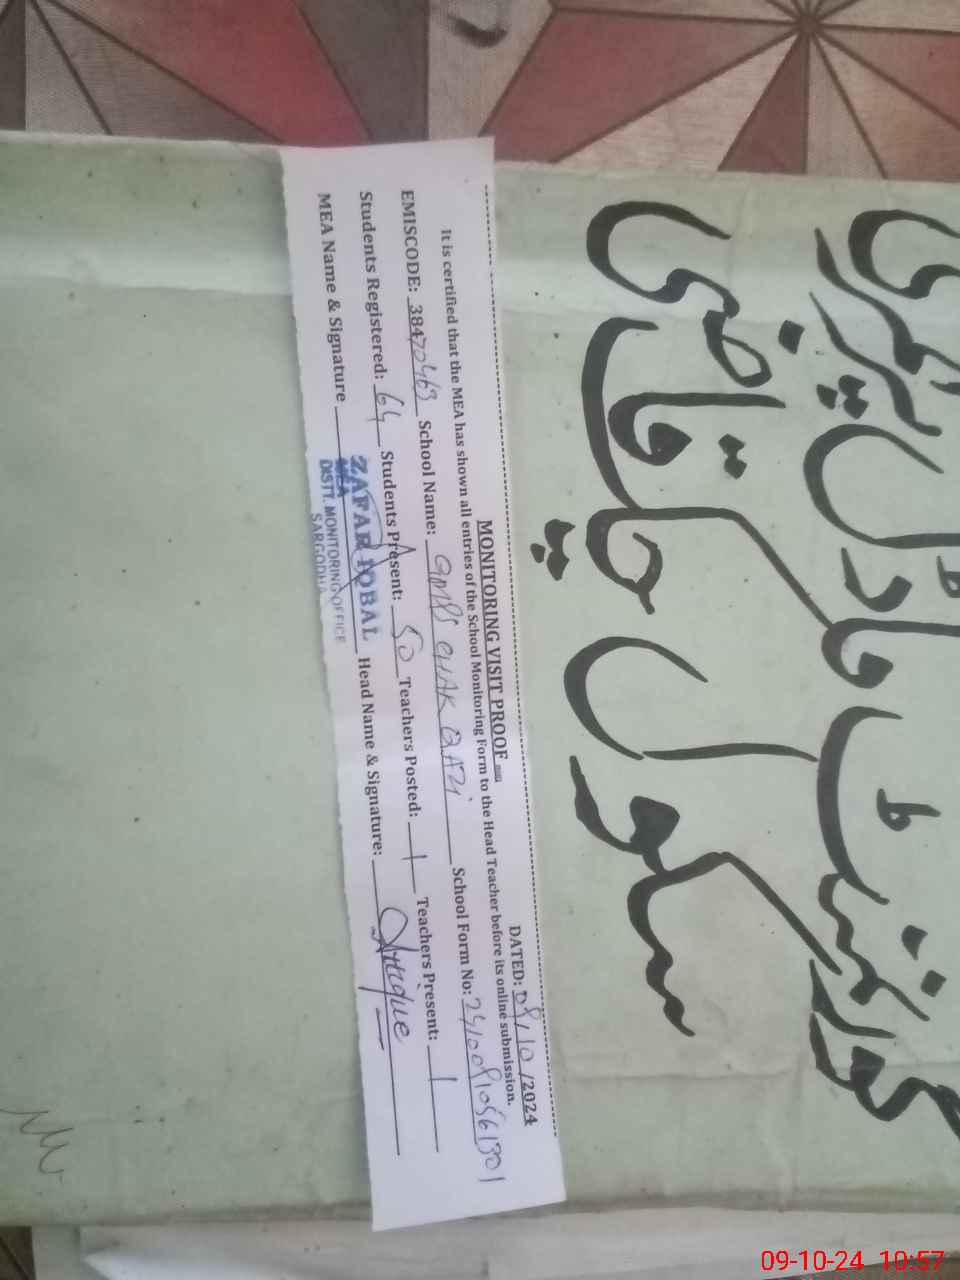 گورنمنٹ ماڈل پرائمری
سکول چک قاضی
MONITORING VISIT PROOF
DATED: 08/10/2024
It is certified that the MEA has shown all entries of the School Monitoring Form to the Head Teacher before its online submission.
EMISCODE: 38470463 School Name: GMPS CHAK QAZI School Form No:
Students Registered: 64 Students Present: 50 Teachers Posted: 1 Teachers Present: 1
MEA Name & Signature Head Name & Signature:
ZAFAR IQBAL
MEA
DISTT. MONITORING OFFICE
SARGODHA
09-10-24 10:57